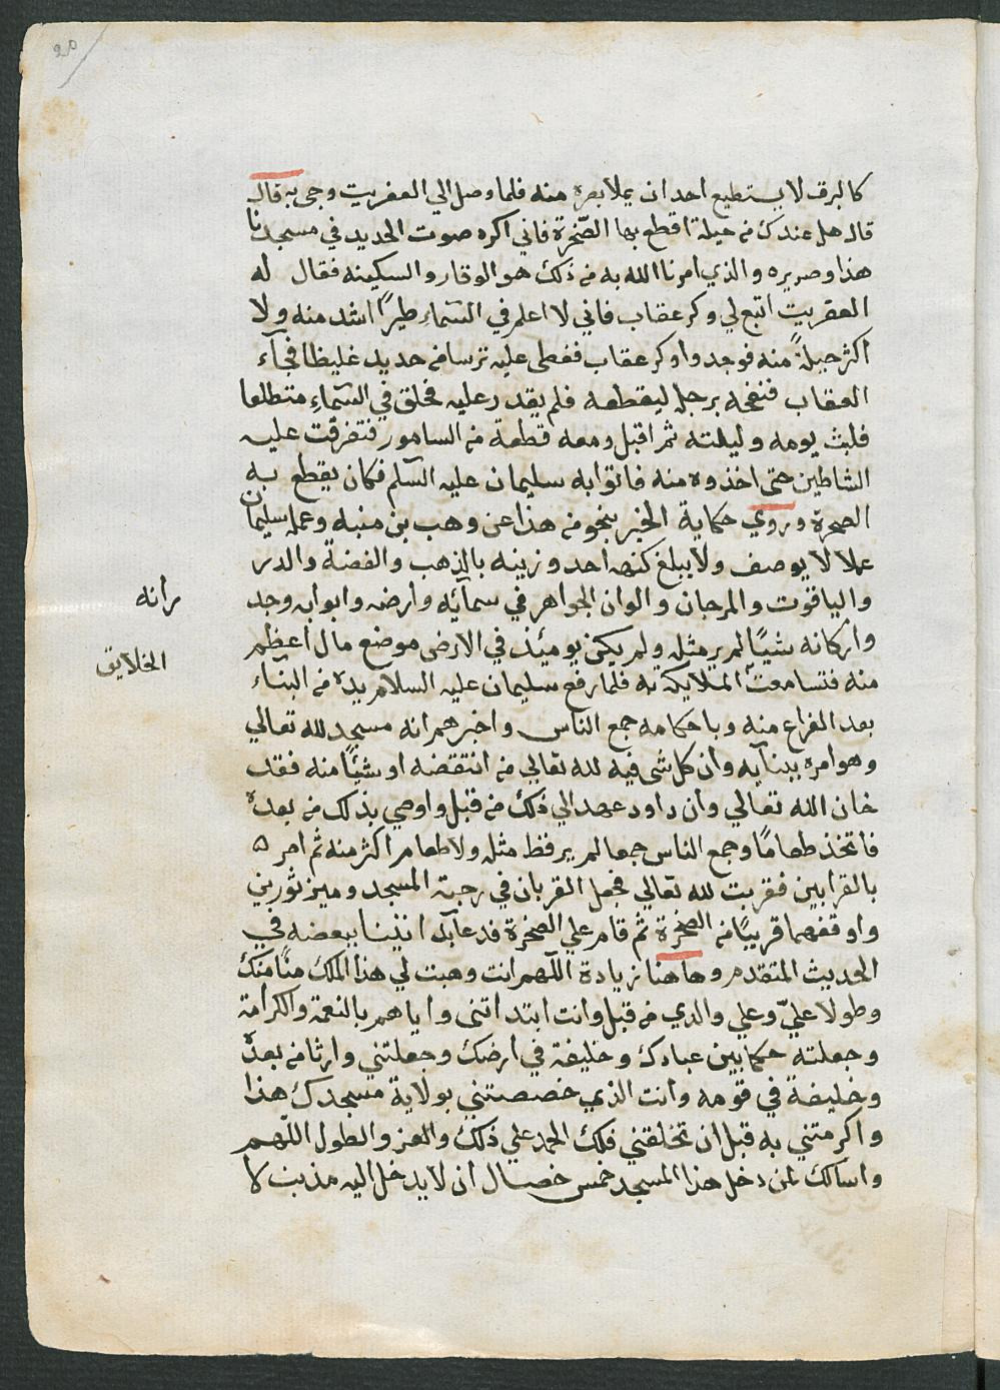 20
كالبرق لا يستطيع احد ان يملا بصره منه فلما وصل الي العفريت وجي به قال
قال هل عندك من حيلة اقطع بها الصخرة فاني اكره صوت الحديد في مسجدنا
هذا وصريره والذي امرنا الله به من ذلك هو الوقار والسكينه فقال له
العفريت اتبع لي وكر عقاب فاني لا اعلم في السماء طيرًا اشد منه ولا
اكثر حيلةً منه فوجدوا وكر عقاب فغطي عليه ترسا من حديد غليظا فجآء
العقاب فنفحه برجله ليقطعه فلم يقدر عليه فحلق في السماء متطلعا
فلبث يومه وليلته ثم اقبل ومعه قطعة من السامور فتفرقت عليه
الشاطين حتى اخذوه منه فاتوا به سليمان عليه السلم فكان يقطع به
الصخرة وروي حكاية الخبر بنحو من هذا عن وهب بن منبه وعمل سليمان
عملا لا يوصف ولا يبلغ كنهه احد وزينه بالذهب والفضة والدر
والياقوت والمرجان والوان الجواهر في سمآئه وارضه وابوابه وجد
وأركانه شيًا لم ير مثله ولم يكن يومئذ في الارض موضع مال اعظم
منه فتسامعت الملايكة به فلما رفع سليمان عليه السلام يده من البناء
بعد الفراغ منه وباحكامه جمع الناس واخبرهم انه مسجد لله تعالي
وهو امره ببنآيه وأن كل شى فيه لله تعالي من انتقضه او شيًا منه فقد
خان الله تعالي وأن داود عهد الي ذلك من قبل واوصي بذلك من بعده
فاتخذ طعامًا وجمع الناس جمعا لم ير قط مثله ولا طعام اكثر منه ثم امر ه
بالقرابين فقربت لله تعالي فجعل القربان في رحبة المسجد وميز ثورين
واوقفهما قريبًا من الصخرة ثم قام علي الصخرة فدعا بما اتينا ببعضه في
الحديث المتقدم وهاهنا زيادة اللهم انت وهبت لي هذا الملك منًا منك
وطولا عليّ وعلي والدي من قبل وانت ابتداتني واياهم بالنعمة والكرامة
وجعلته حكما بين عبادك وخليفة في ارضك وجعلتني وارثا من بعده
وخليفة في قومه وأنت الذي خصصتني بولاية مسجدك هذا
واكرمتني به قبل ان تخلقني فلك الحمد علي ذلك والعز والطول اللهم
واسالك لمن دخل هذا المسجد خمس خصال ان لا يدخل اليه مذنب لا
راته
الخلايق